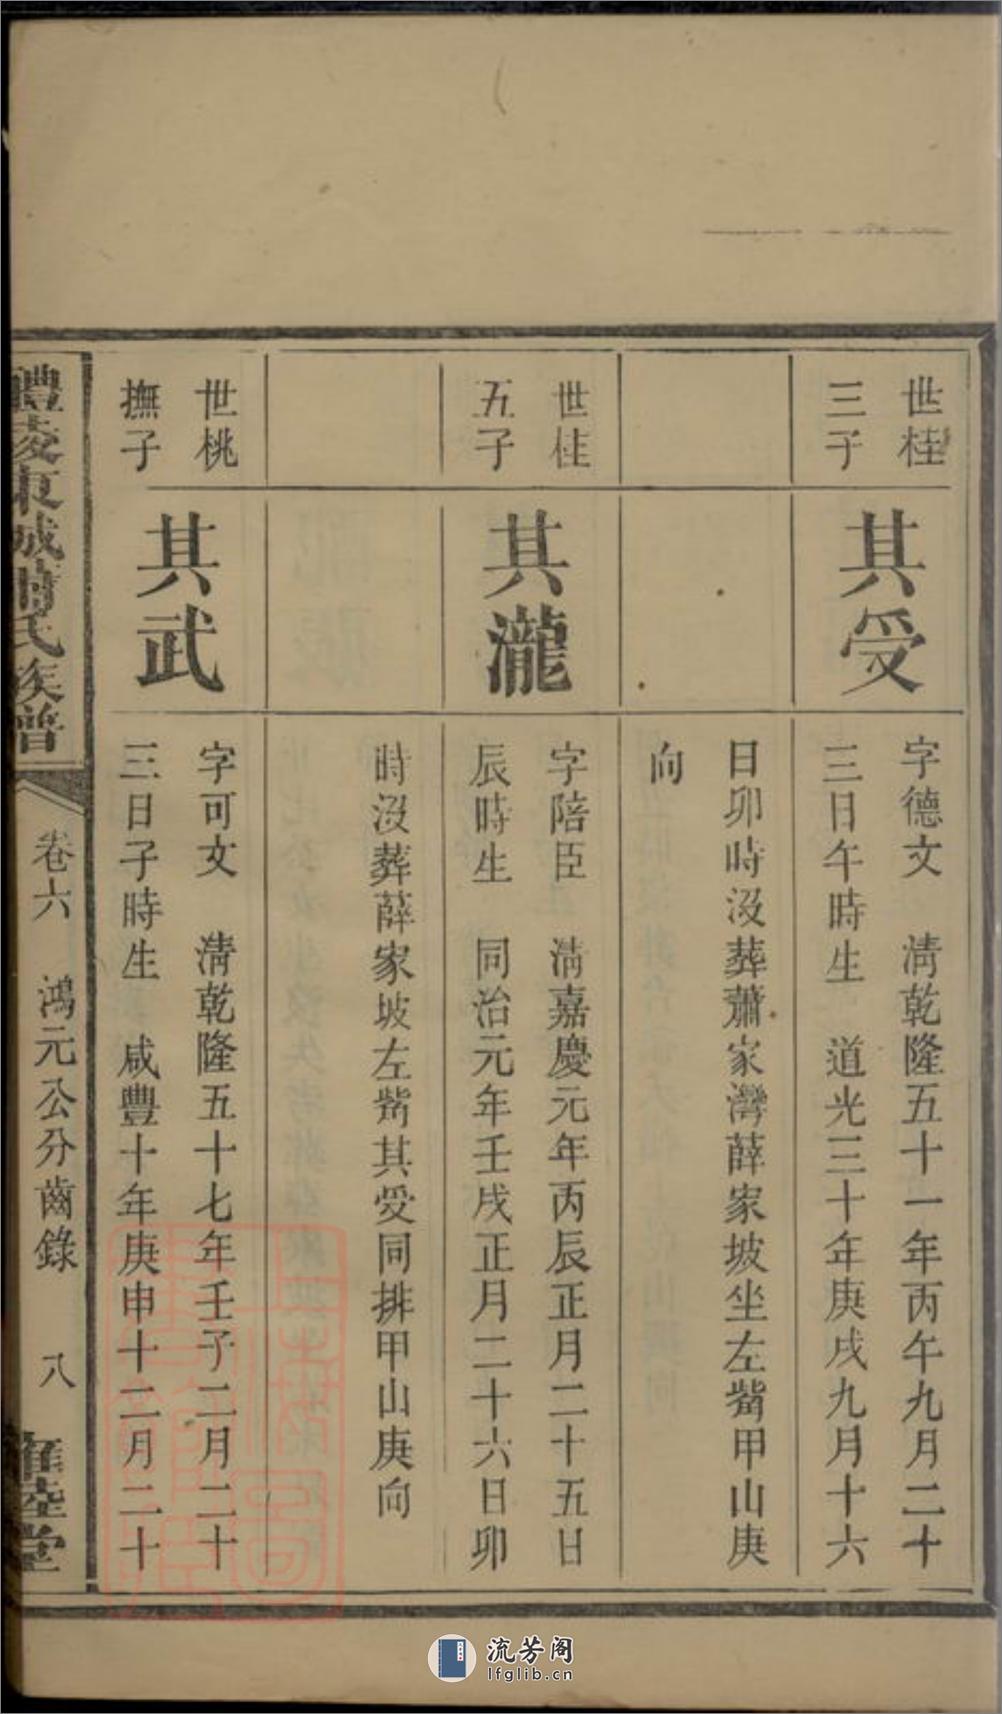 世桂
三子
其受
字德文　清乾隆五十一年丙午九月二十
三日午時生　道光三十年庚戌九月十六
日卯時沒葬蕭家灣薛家坡坐左觜甲山庚
向
世桂
五子
其瀧
字陪臣　清嘉慶元年丙辰正月二十五日
辰時生　同治元年壬戌正月二十六日卯
時沒葬薛家坡左觜其受同排甲山庚向
世桃
撫子
其武
字可文　清乾隆五十七年壬子二月二十
三日子時生　咸豐十年庚申十二月二十
醴陵東城
氏族譜
卷六　鴻元公分齒錄　八
睦堂
流芳阁
lfglib.cn